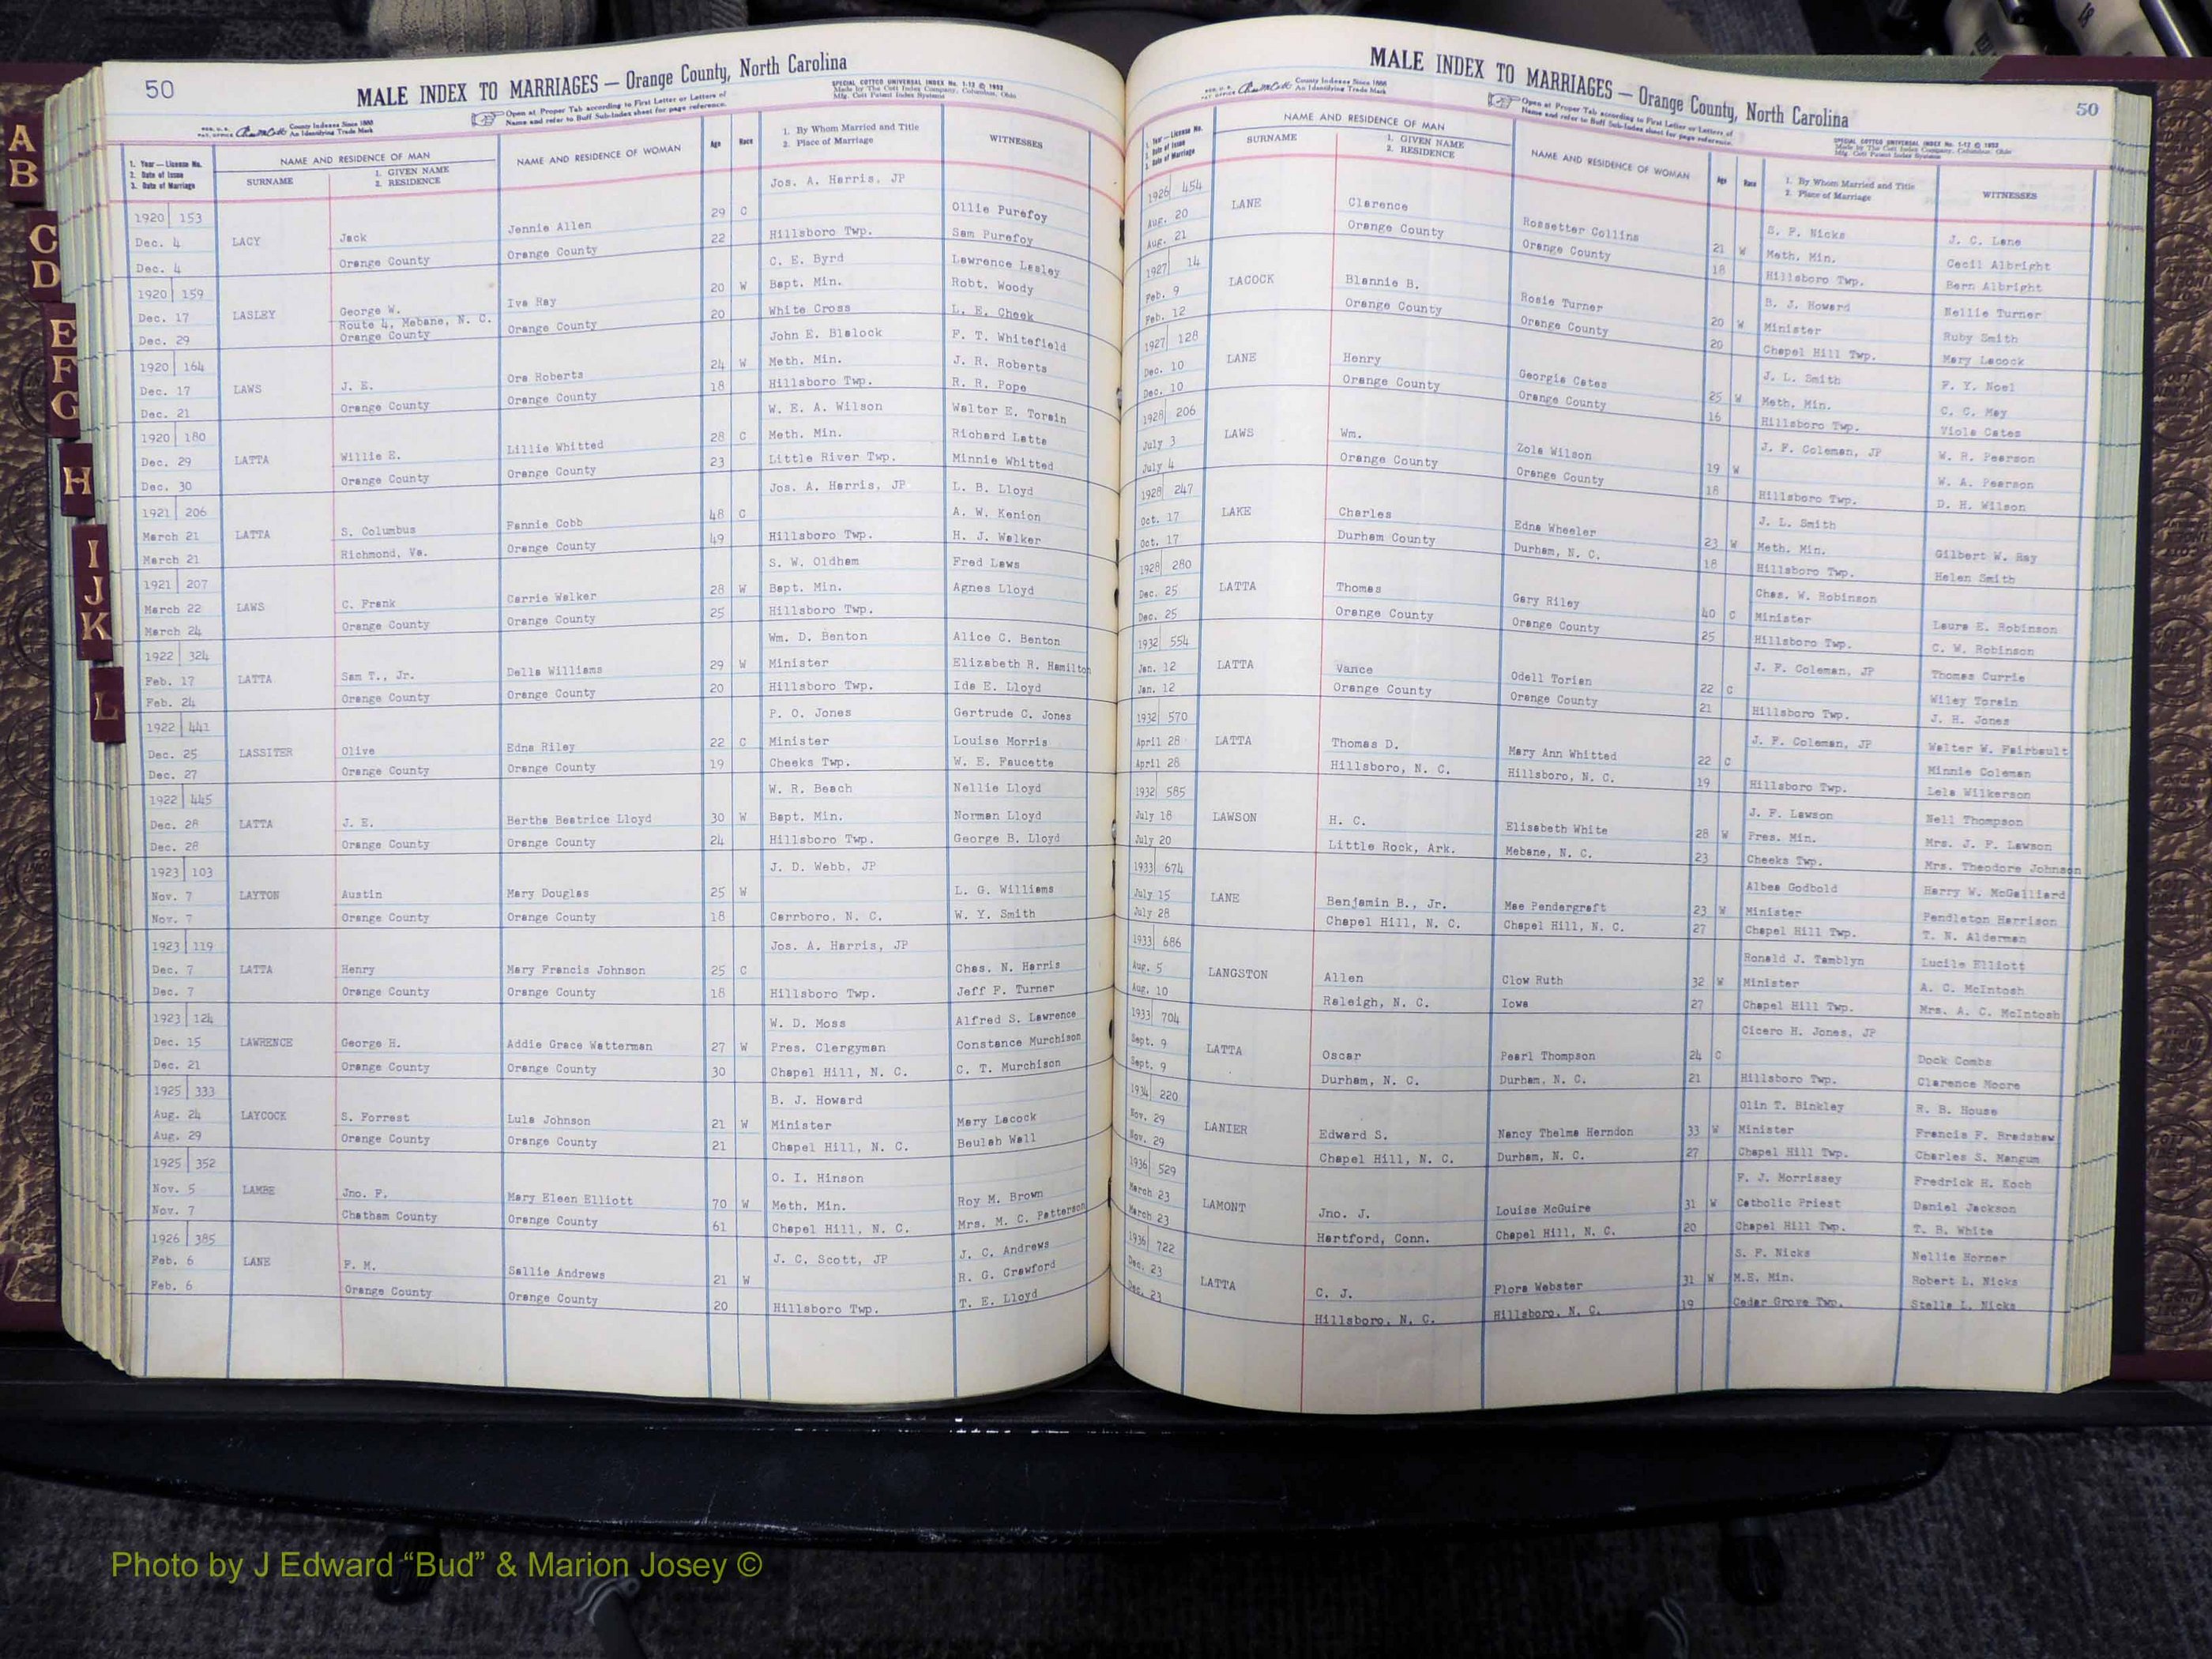 A
B
C
D
E
F
G
H
I
J
K
L
50
MALE INDEX TO MARRIAGES — Orange County, North Carolina
County Indexes Since 1888
An Identifying Trade Mark
Open at Proper Tab according to First Letter or Letters of
Name and refer to Buff Sub-Index sheet for page reference.
SPECIAL COTTCO UNIVERSAL INDEX No. 1-12 © 1952
Made by The Cott Index Company, Columbus, Ohio
Mfg. Cott Patent Index Systems
1. Year — License No.
2. Date of Issue
3. Date of Marriage
NAME AND RESIDENCE OF MAN
SURNAME
1. GIVEN NAME
2. RESIDENCE
NAME AND RESIDENCE OF WOMAN
Age
Race
1. By Whom Married and Title
2. Place of Marriage
WITNESSES
1920 153 Jos. A. Harris, JP Ollie Purefoy
Dec. 4 LACY Jack Jennie Allen 29 C Sam Purefoy
Dec. 4 Orange County Orange County 22 Hillsboro Twp.
1920 159 C. E. Byrd Lawrence Lasley
Dec. 17 LASLEY George W. Iva Ray 20 W Bapt. Min. Robt. Woody
Dec. 29 Route 4, Mebane, N. C. Orange County Orange County 20 White Cross L. E. Cheek
1920 164 John E. Blalock F. T. Whitefield
Dec. 17 LAWS J. E. Ora Roberts 24 W Meth. Min. J. R. Roberts
Dec. 21 Orange County Orange County 18 Hillsboro Twp. R. R. Pope
1920 180 W. E. A. Wilson Walter E. Torain
Dec. 29 LATTA Willie E. Lillie Whitted 28 C Meth. Min. Richard Latta
Dec. 30 Orange County Orange County 23 Little River Twp. Minnie Whitted
1921 206 Jos. A. Harris, JP L. B. Lloyd
March 21 LATTA S. Columbus Fannie Cobb 48 C A. W. Kenion
March 21 Richmond, Va. Orange County 49 Hillsboro Twp. H. J. Walker
1921 207 S. W. Oldham Fred Laws
March 22 LAWS C. Frank Carrie Walker 28 W Bapt. Min. Agnes Lloyd
March 24 Orange County Orange County 25 Hillsboro Twp.
1922 324 Wm. D. Benton Alice C. Benton
Feb. 17 LATTA Sam T., Jr. Della Williams 29 W Minister Elizabeth R. Hamilton
Feb. 24 Orange County Orange County 20 Hillsboro Twp. Ida E. Lloyd
1922 441 P. O. Jones Gertrude C. Jones
Dec. 25 LASSITER Olive Edna Riley 22 C Minister Louise Morris
Dec. 27 Orange County Orange County 19 Cheeks Twp. W. E. Faucette
1922 445 W. R. Beach Nellie Lloyd
Dec. 28 LATTA J. E. Bertha Beatrice Lloyd 30 W Bapt. Min. Norman Lloyd
Dec. 28 Orange County Orange County 24 Hillsboro Twp. George B. Lloyd
1923 103 J. D. Webb, JP
Nov. 7 LAYTON Austin Mary Douglas 25 W L. G. Williams
Nov. 7 Orange County Orange County 18 Carrboro, N. C. W. Y. Smith
1923 119 Jos. A. Harris, JP
Dec. 7 LATTA Henry Mary Francis Johnson 25 C Chas. N. Harris
Dec. 7 Orange County Orange County 18 Hillsboro Twp. Jeff F. Turner
1923 124 W. D. Moss Alfred S. Lawrence
Dec. 15 LAWRENCE George H. Addie Grace Watterman 27 W Pres. Clergyman Constance Murchison
Dec. 21 Orange County Orange County 30 Chapel Hill, N. C. C. T. Murchison
1925 333 B. J. Howard
Aug. 24 LAYCOCK S. Forrest Lula Johnson 21 W Minister Mary Lacock
Aug. 29 Orange County Orange County 21 Chapel Hill, N. C. Beulah Wall
1925 352 O. I. Hinson
Nov. 5 LAMBE Jno. F. Mary Eleen Elliott 70 W Meth. Min. Roy M. Brown
Nov. 7 Chatham County Orange County 61 Chapel Hill, N. C. Mrs. M. C. Patterson
1926 385 J. C. Scott, JP J. C. Andrews
Feb. 6 LANE F. M. Sallie Andrews 21 W R. G. Crawford
Feb. 6 Orange County Orange County 20 Hillsboro Twp. T. E. Lloyd
MALE INDEX TO MARRIAGES — Orange County, North Carolina
50
County Indexes Since 1888
An Identifying Trade Mark
Open at Proper Tab according to First Letter or Letters of
Name and refer to Buff Sub-Index sheet for page reference.
SPECIAL COTTCO UNIVERSAL INDEX No. 1-12 © 1952
Made by The Cott Index Company, Columbus, Ohio
Mfg. Cott Patent Index Systems
1. Year — License No.
2. Date of Issue
3. Date of Marriage
NAME AND RESIDENCE OF MAN
SURNAME
1. GIVEN NAME
2. RESIDENCE
NAME AND RESIDENCE OF WOMAN
Age
Race
1. By Whom Married and Title
2. Place of Marriage
WITNESSES
1926 454 S. F. Nicks J. C. Lane
Aug. 20 LANE Clarence Rossetter Collins 21 W Meth. Min. Cecil Albright
Aug. 21 Orange County Orange County 18 Hillsboro Twp. Bern Albright
1927 14 B. J. Howard Nellie Turner
Feb. 9 LACOCK Blannie B. Rosie Turner 20 W Minister Ruby Smith
Feb. 12 Orange County Orange County 20 Chapel Hill Twp. Mary Lacock
1927 128 J. L. Smith F. Y. Noel
Dec. 10 LANE Henry Georgia Cates 25 W Meth. Min. C. C. May
Dec. 10 Orange County Orange County 16 Hillsboro Twp. Viola Cates
1928 206 J. F. Coleman, JP W. R. Pearson
July 3 LAWS Wm. Zola Wilson 19 W W. A. Pearson
July 4 Orange County Orange County 18 Hillsboro Twp. D. H. Wilson
1928 247 J. L. Smith
Oct. 17 LAKE Charles Edna Wheeler 23 W Meth. Min. Gilbert W. Ray
Oct. 17 Durham County Durham, N. C. 18 Hillsboro Twp. Helen Smith
1928 280 Chas. W. Robinson
Dec. 25 LATTA Thomas Gary Riley 40 C Minister Laura E. Robinson
Dec. 25 Orange County Orange County 25 Hillsboro Twp. C. W. Robinson
1932 554 J. F. Coleman, JP Thomas Currie
Jan. 12 LATTA Vance Odell Torian 22 C Wiley Torain
Jan. 12 Orange County Orange County 21 Hillsboro Twp. J. H. Jones
1932 570 J. F. Coleman, JP Walter W. Fairbault
April 28 LATTA Thomas D. Mary Ann Whitted 22 C Minnie Coleman
April 28 Hillsboro, N. C. Hillsboro, N. C. 19 Hillsboro Twp. Lela Wilkerson
1932 585 J. F. Lawson Nell Thompson
July 18 LAWSON H. C. Elisabeth White 28 W Pres. Min. Mrs. J. F. Lawson
July 20 Little Rock, Ark. Mebane, N. C. 23 Cheeks Twp. Mrs. Theodore Johnson
1933 674 Albea Godbold Harry W. McGalliard
July 15 LANE Benjamin B., Jr. Mae Pendergraft 23 W Minister Pendleton Harrison
July 28 Chapel Hill, N. C. Chapel Hill, N. C. 27 Chapel Hill Twp. T. N. Alderman
1933 686 Ronald J. Tamblyn Lucile Elliott
Aug. 5 LANGSTON Allen Clow Ruth 32 W Minister A. C. McIntosh
Aug. 10 Raleigh, N. C. Iowa 27 Chapel Hill Twp. Mrs. A. C. McIntosh
1933 704 Cicero H. Jones, JP
Sept. 9 LATTA Oscar Pearl Thompson 24 C Dock Combs
Sept. 9 Durham, N. C. Durham, N. C. 21 Hillsboro Twp. Clarence Moore
1934 220 Olin T. Binkley R. B. House
Nov. 29 LANIER Edward S. Nancy Thelma Herndon 33 W Minister Francis F. Bradshaw
Nov. 29 Chapel Hill, N. C. Durham, N. C. 27 Chapel Hill Twp. Charles S. Mangum
1936 529 F. J. Morrissey Fredrick H. Koch
March 23 LAMONT Jno. J. Louise McGuire 31 W Catholic Priest Daniel Jackson
March 23 Hartford, Conn. Chapel Hill, N. C. 20 Chapel Hill Twp. T. B. White
1936 722 S. F. Nicks Nellie Horner
Dec. 23 LATTA C. J. Flora Webster 31 W M.E. Min. Robert L. Nicks
Dec. 23 Hillsboro, N. C. Hillsboro, N. C. 19 Cedar Grove Twp. Stella L. Nicks
Photo by J Edward “Bud” & Marion Josey ©